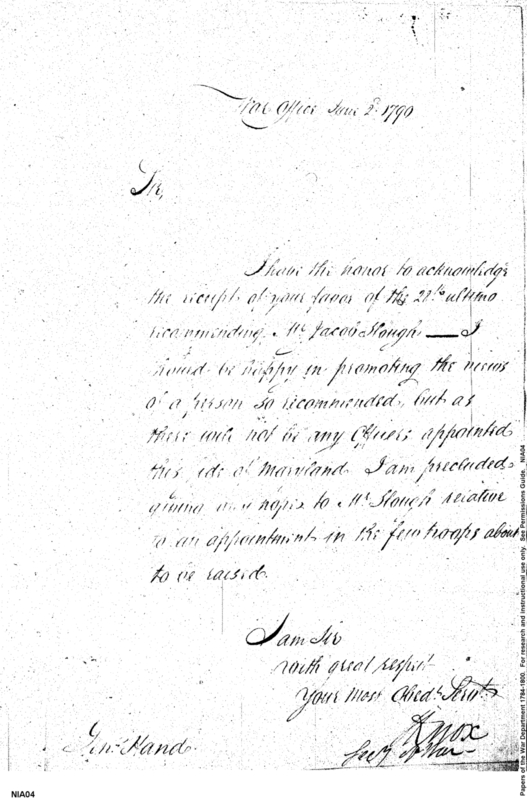 War Office June 2d. 1790
Sir,
I have the honor to acknowledge
the receipt of your favor of the 28th ultimo
recommending Mr. Jacob Slough — I
should be happy in promoting the views
of a person so recommended, but as
there will not be any Officers appointed
this side of Maryland I am precluded
giving any hopes to Mr. Slough relative
to an appointment in the few troops about
to be raised.
I am Sir
with great respect
Your Most Obedt. Servt.
HKnox
Secy of War
Genl. Hand
NIA04
Papers of the War Department 1784-1800. For research and instructional use only. See Permissions Guide. NIA04